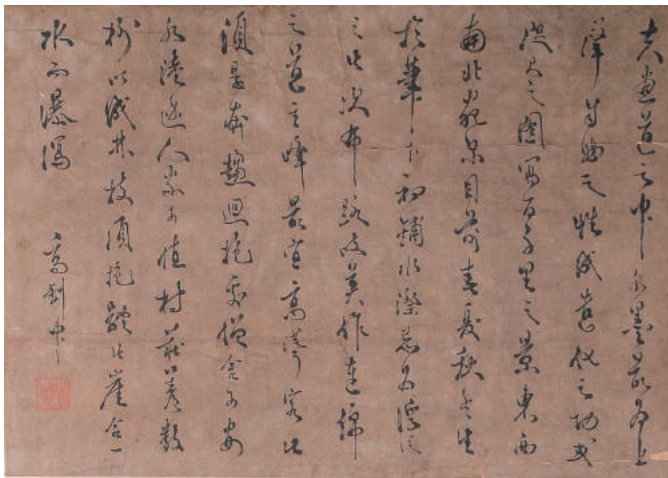 夫畫道之中水墨最為上
肇自然之性成造化之功或
咫尺之圖寫百千里之景東西
南北宛尔目前春夏秋冬生
於筆下初鋪水際忌為浮泛
之山次布路岐莫作連綿
之道主峰最宜高聳客山
須是奔趨迴抱處僧舍可安
水陸邊人家可置村莊著數
樹以成林枝須抱體山崖合一
水而瀑瀉 高釗中